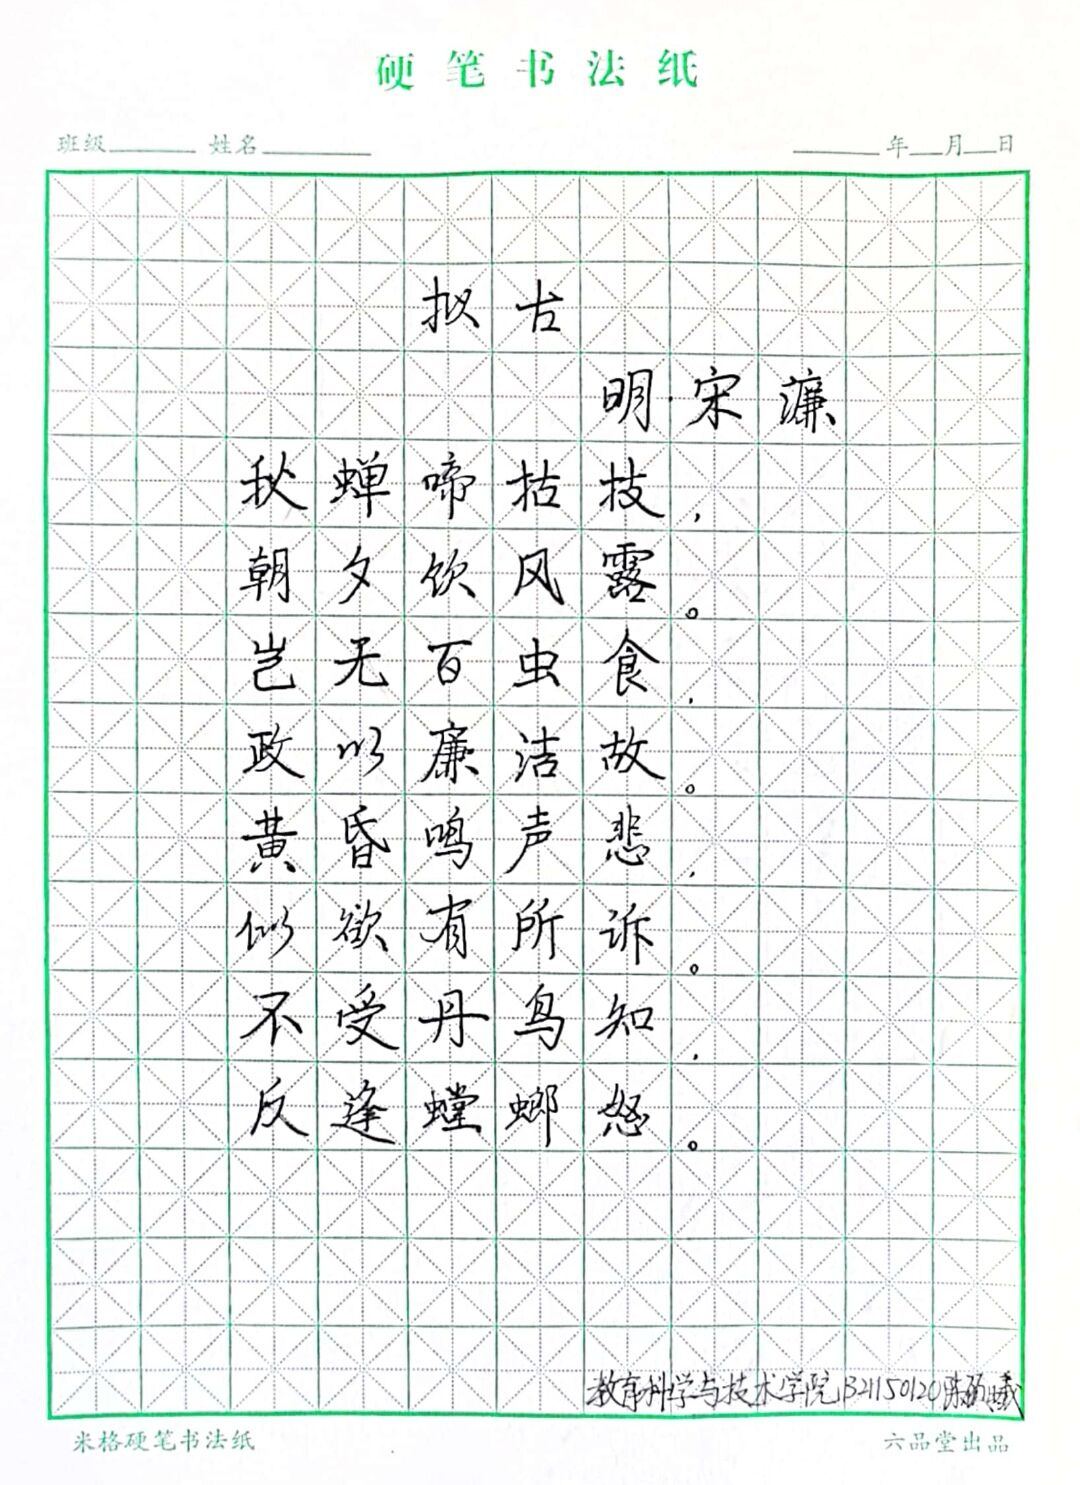 硬笔书法纸
班级 姓名 年 月 日
拟古
明·宋濂
秋蝉啼枯技，
朝夕饮风露。
岂无百虫食，
政以廉洁故。
黄昏鸣声悲，
似欲有所诉。
不受丹鸟知，
反逢螳螂怒。
教育科学与技术学院B21150120陈
米格硬笔书法纸 六品堂出品